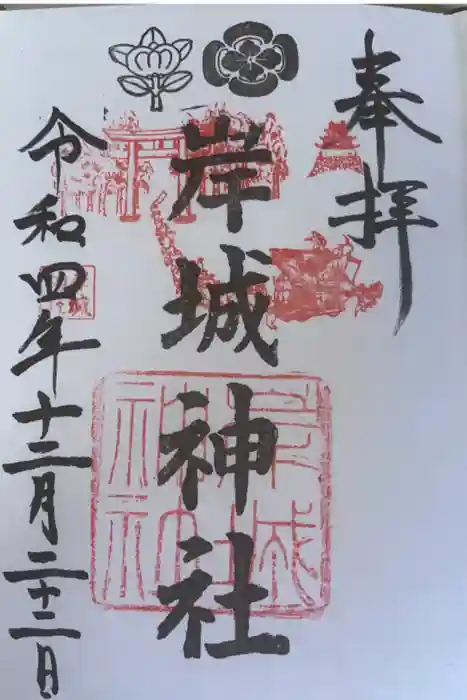 奉拝
岸城神社
岸城神社
令和四年十二月二十二日